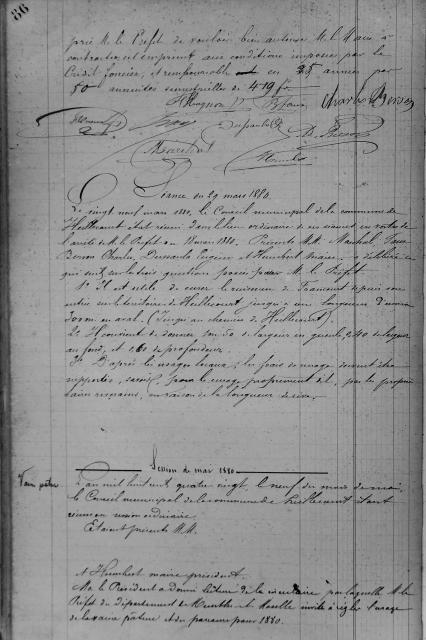 86
prie M. le Préfet de vouloir bien autoriser M. le Maire à
contracter cet emprunt aux conditions imposées par le
Crédit foncier, et remboursable en 25 années par
50 annuités semestrielles de 419 f
Séance du 29 mars 1880.
Le vingt neuf mars 1880, le Conseil municipal de la commune de
Heillecourt s'est réuni dans le lieu ordinaire de ses séances en vertu de
l'arrêté de M. le Préfet du 18 mars 1880. Présents M.M. Marchal,
Charles, Eugène et Humbert Maire, a délibéré ce
qui suit sur les trois questions posées par M. le Préfet
1° Il est utile de curer le ruisseau de depuis son
entrée sur le territoire de Heillecourt jusqu'à une longueur d'environ
300m en aval. (Jusqu'au chemin de Heillecourt).
2° Il convient de donner 1m50 de largeur en gueule, 0,40 de largeur
au fond, et 0,60 de profondeur.
3° D'après les usages locaux, les frais de curage doivent être
supportés, savoir, pour le curage proprement dit, par les proprié-
taires riverains, en raison de la longueur de rive.
Session de mai 1880
Vaine pâture
L'an mil huit cent quatre vingt, le neuf du mois de mai,
le Conseil municipal de la commune de Heillecourt s'étant
réuni en session ordinaire.
Etaient présents M.M.
et Humbert maire président.
M. le Président a donné lecture de la circulaire par laquelle M. le
Préfet du département de Meurthe et Moselle invite à régler l'usage
de la vaine pâture et du parcours pour 1880.